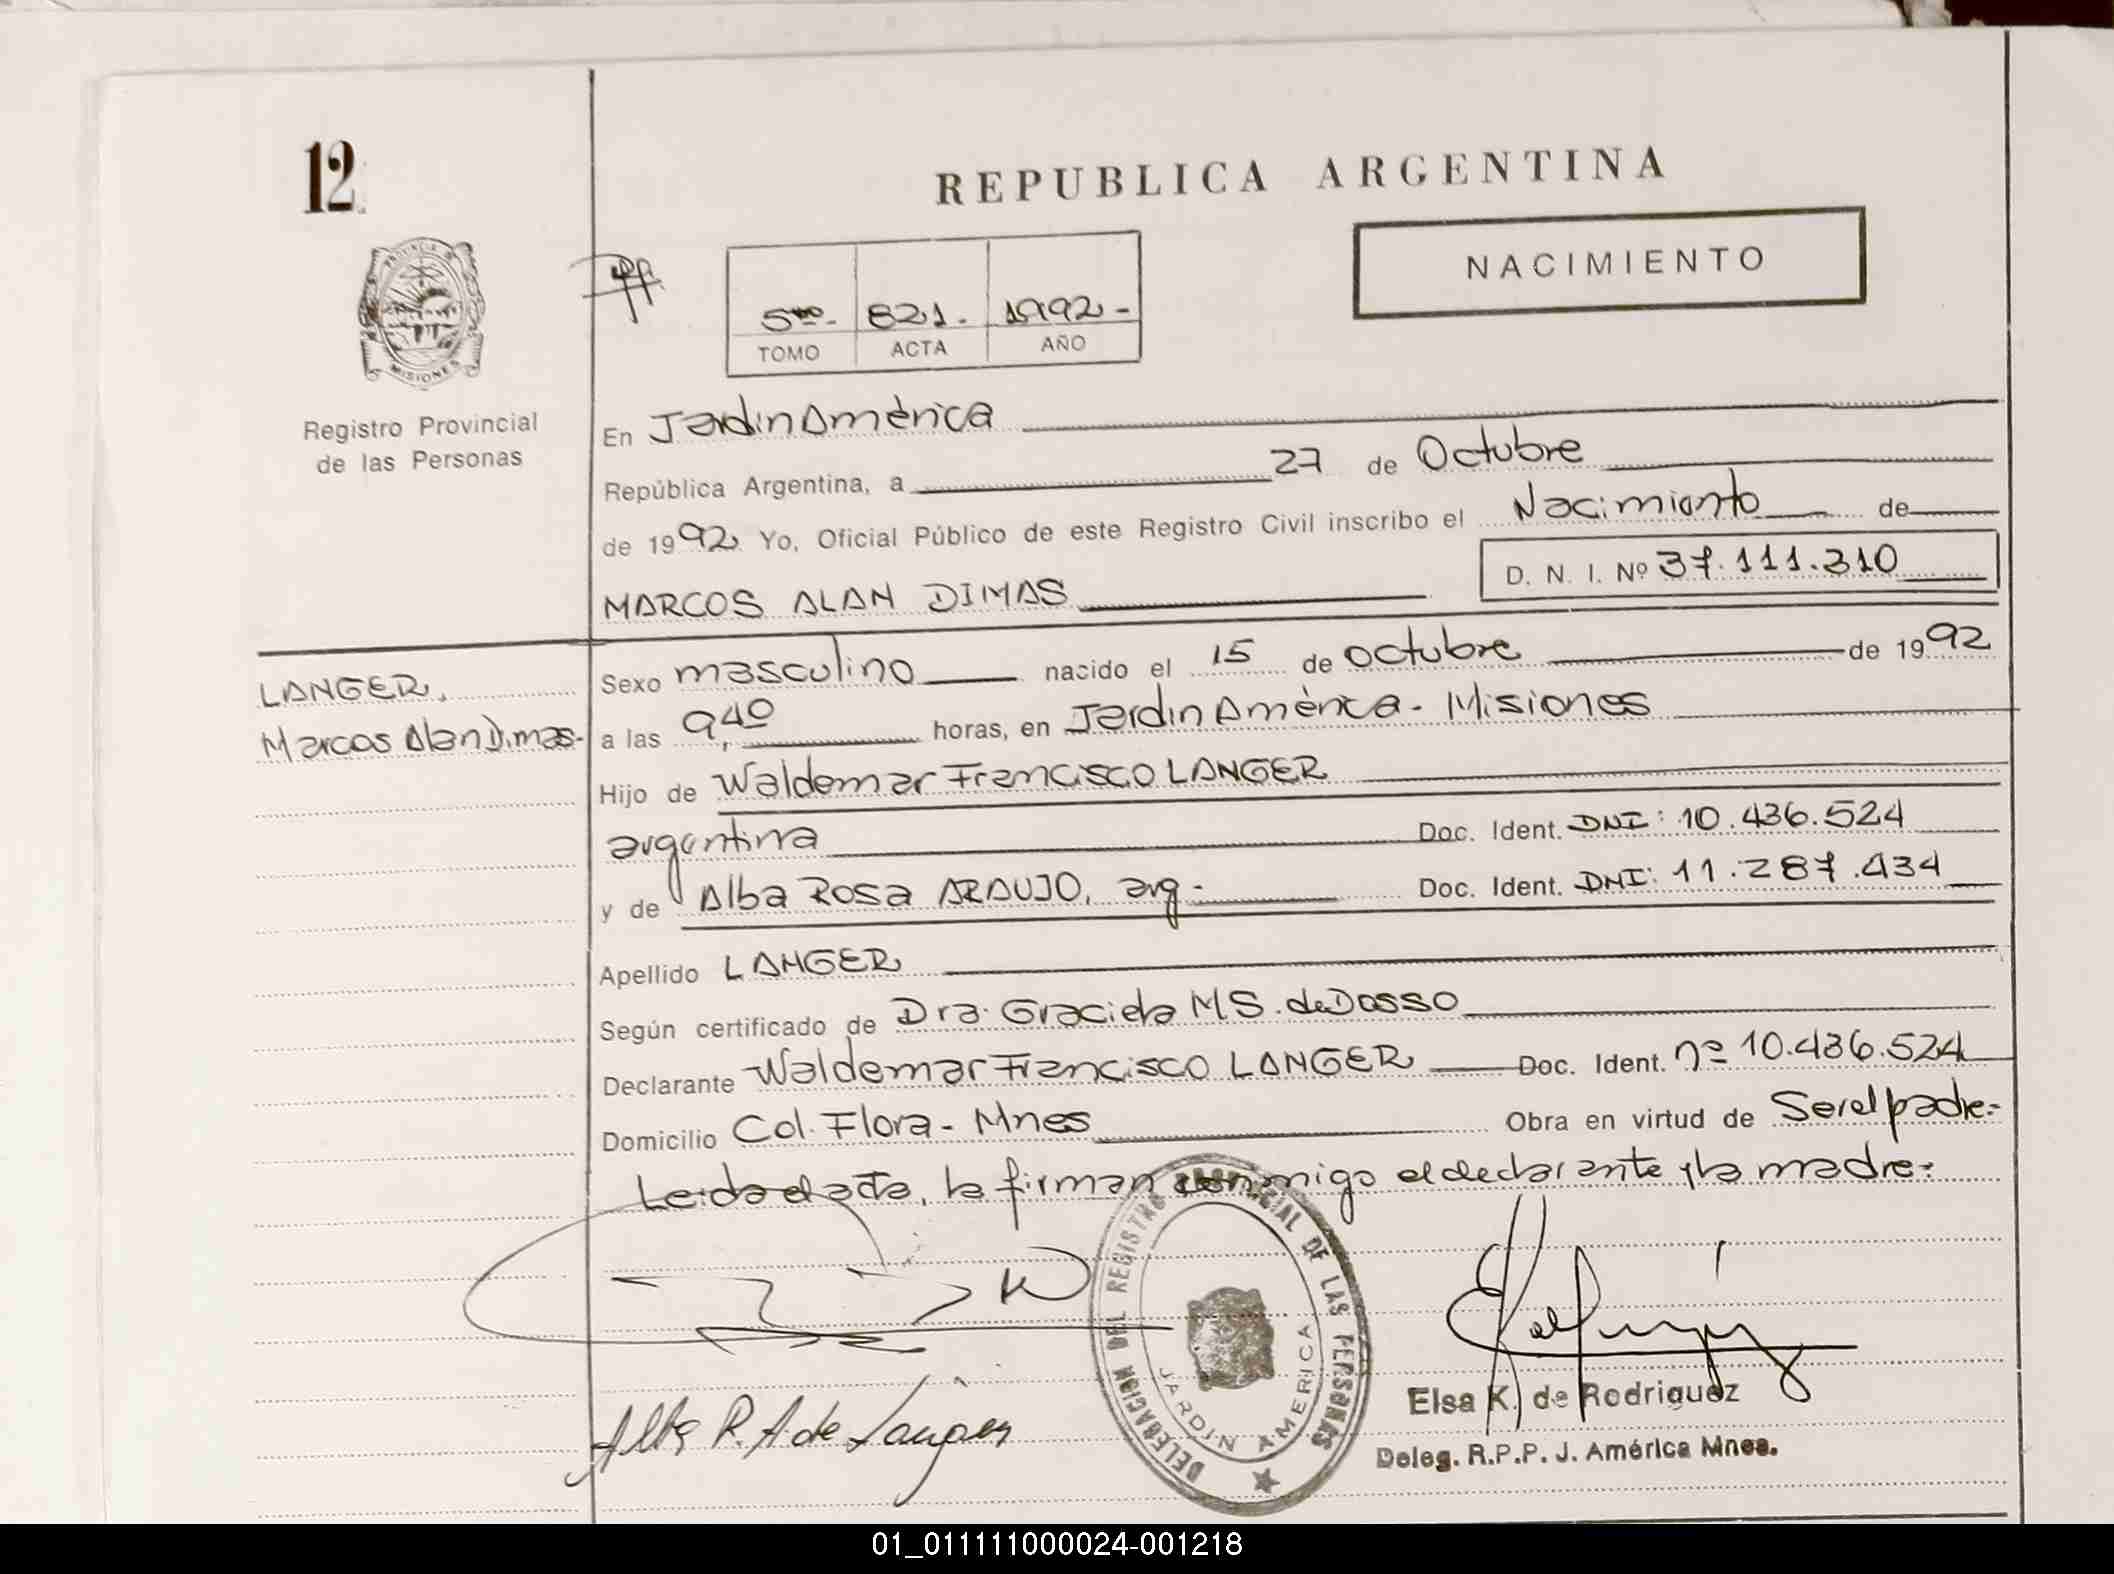 12
REPUBLICA ARGENTINA
NACIMIENTO
PROVINCIA DE
MISIONES
Registro Provincial
de las Personas
5to.- 821.- 1992-
TOMO ACTA AÑO
En Jardin América
República Argentina, a 27 de Octubre
de 1992. Yo, Oficial Público de este Registro Civil inscribo el Nacimiento de
D. N. I. Nº 37.111.310
MARCOS ALAN DIMAS
LANGER,
Marcos Alan Dimas-
Sexo masculino nacido el 15 de octubre de 1992
a las 9,40 horas, en Jardin América - Misiones
Hijo de Waldemar Francisco LANGER
argentina Doc. Ident. DNI: 10.436.524
y de Alba Rosa ARAUJO, arg.- Doc. Ident. DNI: 11.287.434
Apellido LANGER
Según certificado de Dra. Graciela MS. de Dasso
Declarante Waldemar Francisco LANGER Doc. Ident. nº 10.436.524
Domicilio Col. Flora - Mnes Obra en virtud de Ser el padre.-
Leida el acta, la firman conmigo el declarante y la madre.-
DELEGACION DEL REGISTRO PROVINCIAL DE LAS PERSONAS
JARDIN AMERICA
Alba R. A de Langer
Elsa K. de Rodriguez
Deleg. R.P.P. J. América Mnes.
01_011111000024-001218